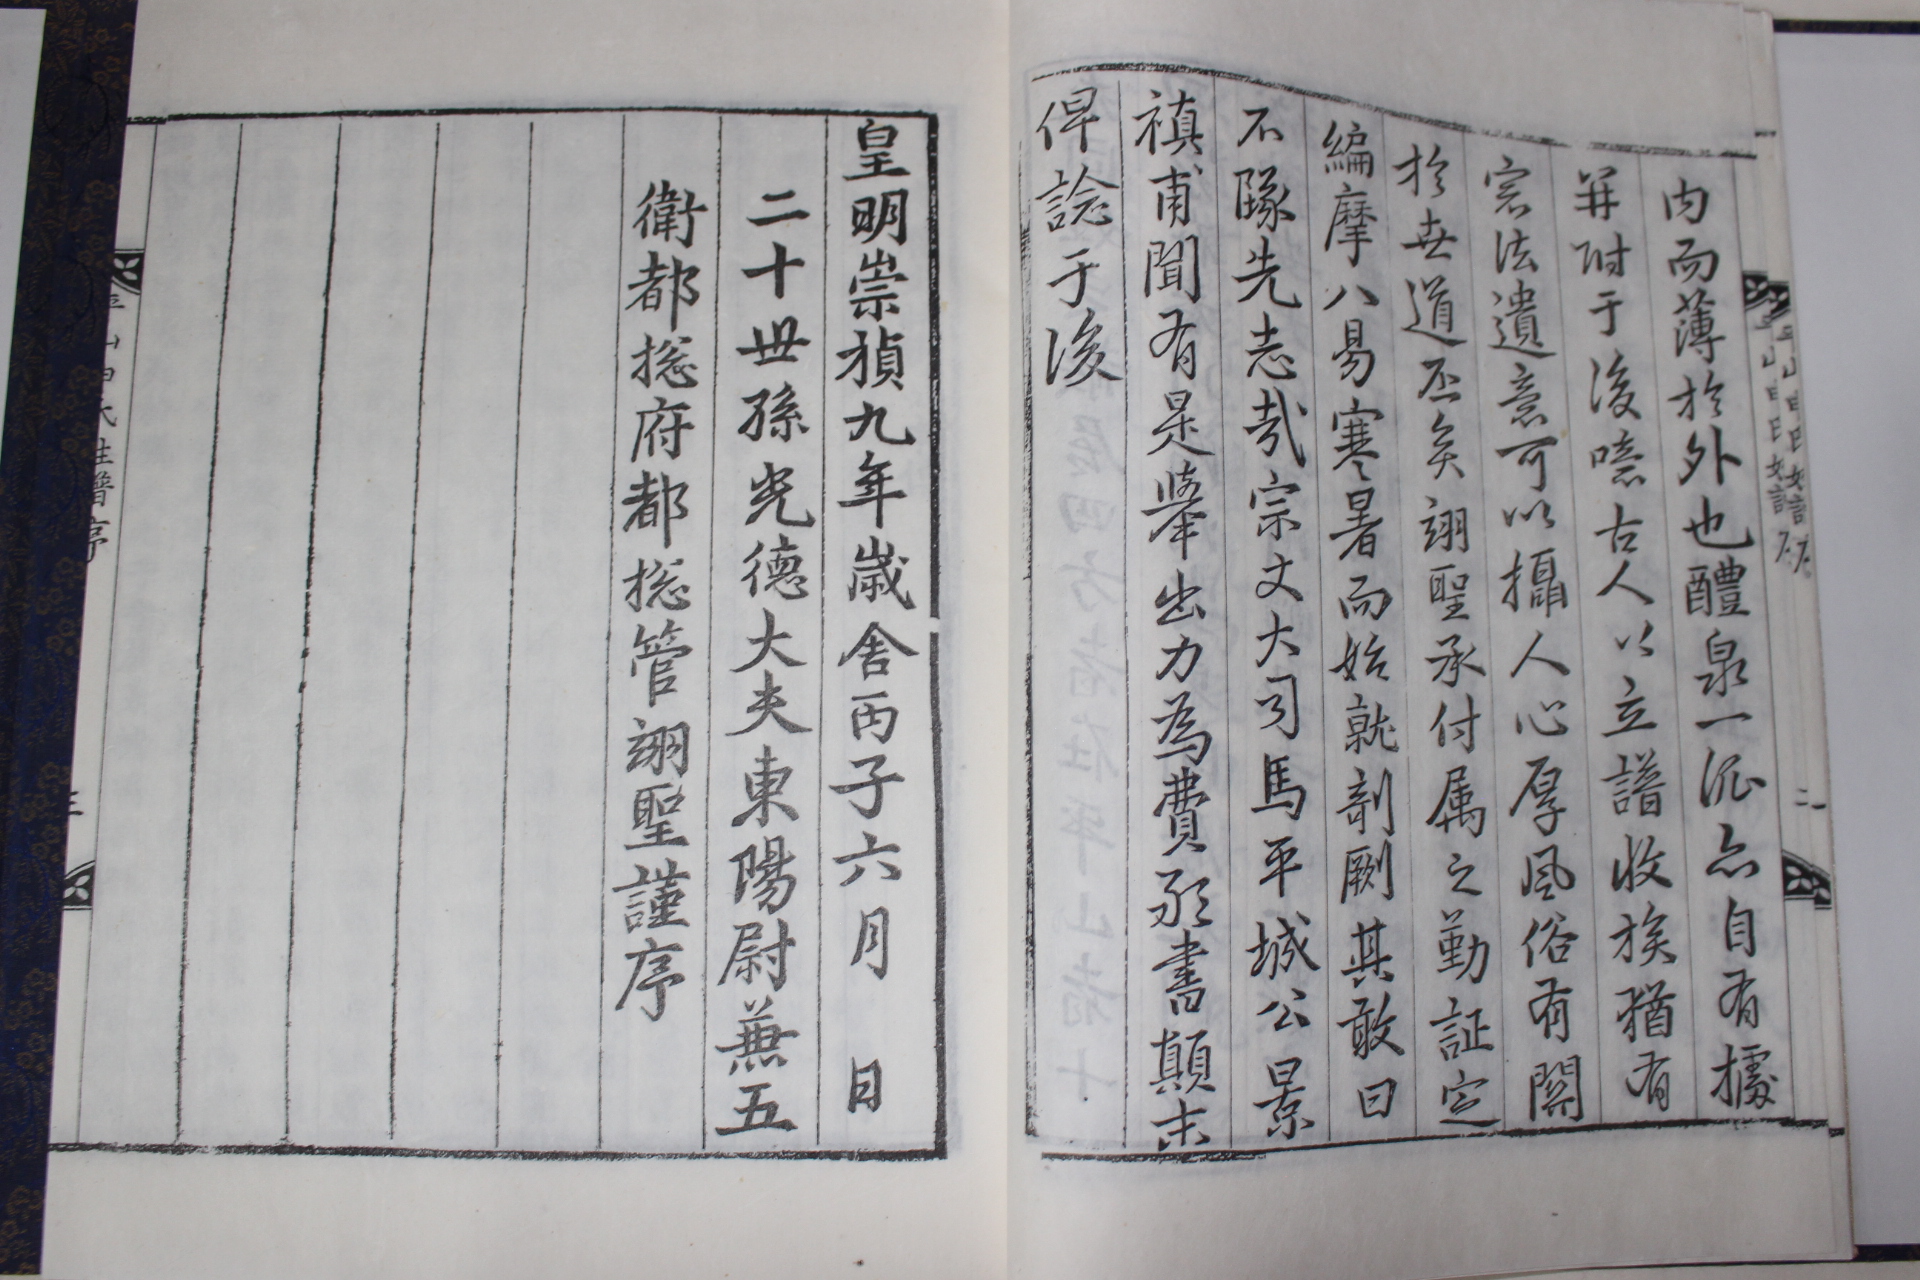 內而薄於外也醴泉一派亦自有據
幷附于後噫古人以立譜收族猶有
宗法遺意可以攝人心厚風俗有關
於世道丕矣翊聖承付属之勤証定
編摩八易寒暑而始就剞劂其敢曰
不隊先志哉宗文大司馬平城公景
禛甫聞有是擧出力為費敍書顛末
俾諗于後
皇明崇禎九年歲舍丙子六月 日
二十世孫光德大夫東陽尉兼五
衛都摠府都摠管翊聖謹序
平山申氏姓譜序
三
平山申氏姓譜序
二